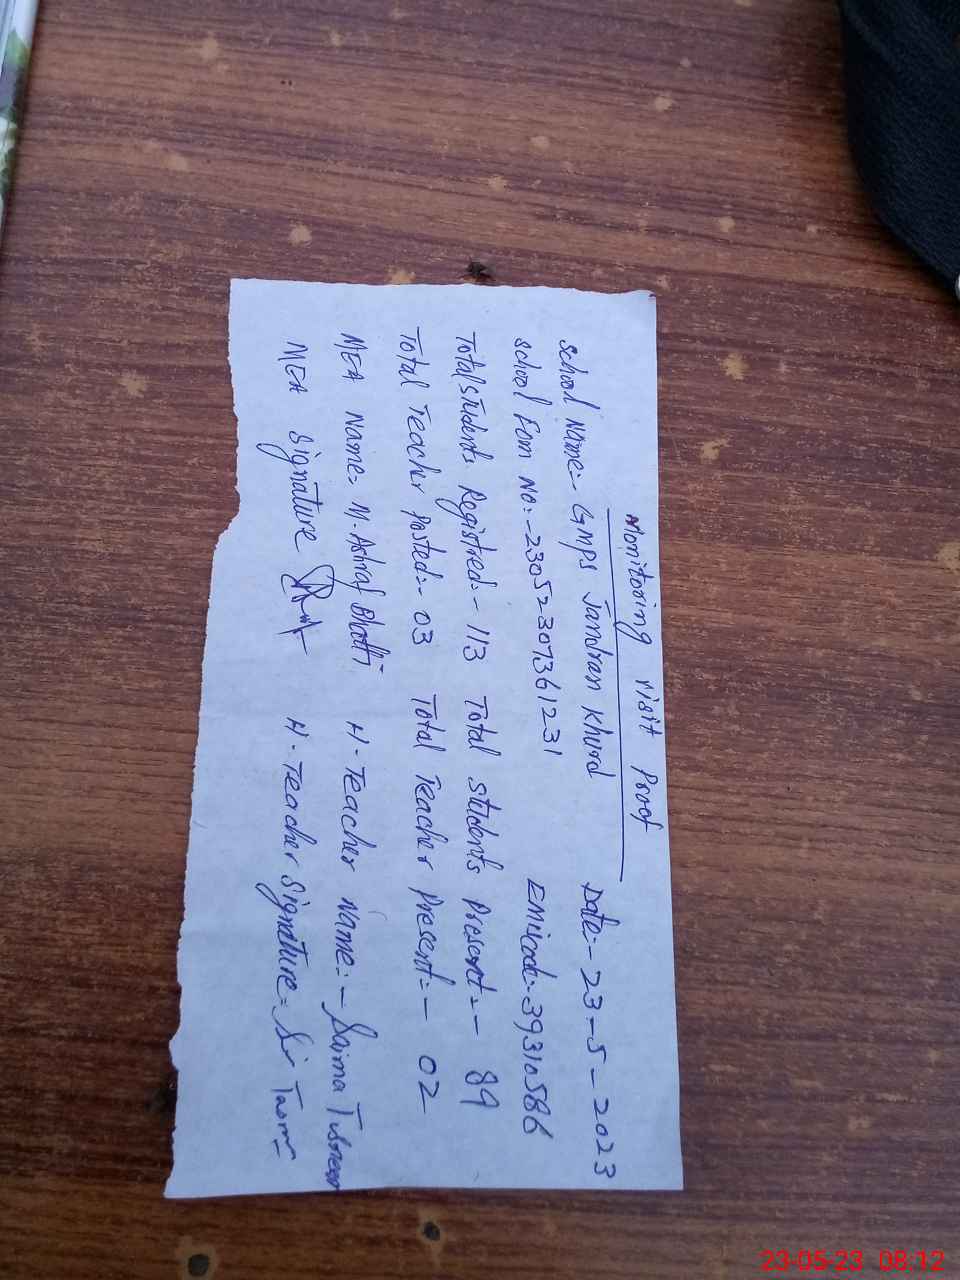 Monitoring visit Proof
School Name:- GMPS Jandran Khurd Date:- 23-5-2023
School Form No:- 23052307361231 Emiscode:- 39310586
Total Students Registred:- 113 Total students Present:- 89
Total Teacher Posted:- 03 Total Teacher Present:- 02
MEA Name:- M. Ashraf Bhatti H-Teacher Name:- Saima
MEA Signature H-Teacher Signature:-
23-05-23 08:12